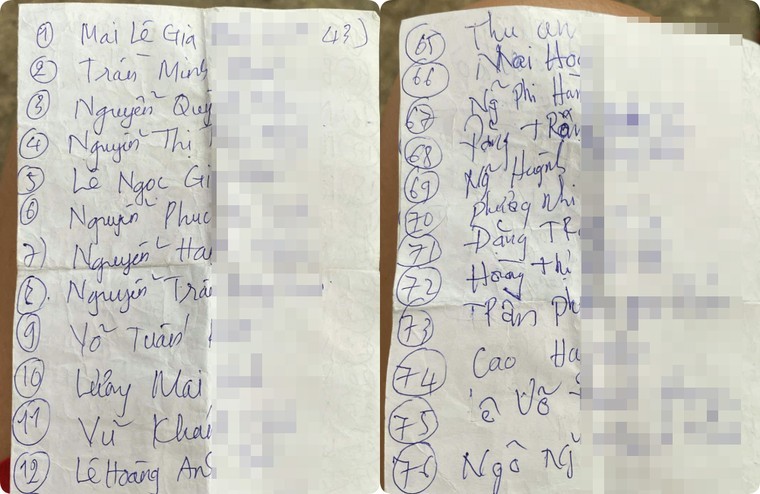 1 Mai Lê Gia 43)
2 Trần Minh
3 Nguyễn Quý
4 Nguyễn Thị
5 Lê Ngọc Gi
6 Nguyễn Phúc
7) Nguyễn Ha
8. Nguyễn Trà
9 Võ Tuấn
10 Lương Mai
11 Vũ Khá
12 Lê Hoàng An
65 Thu an
66 Mai Ho
67 Ng Phi Hà
68 Đặng Trầ
69 Ng Huỳnh
70 Phương Nhi
71 Đặng TR
72 Hoàng Thị
73 Trần Ph
74 Cao Ha
75 Võ
76 Ngô Ng